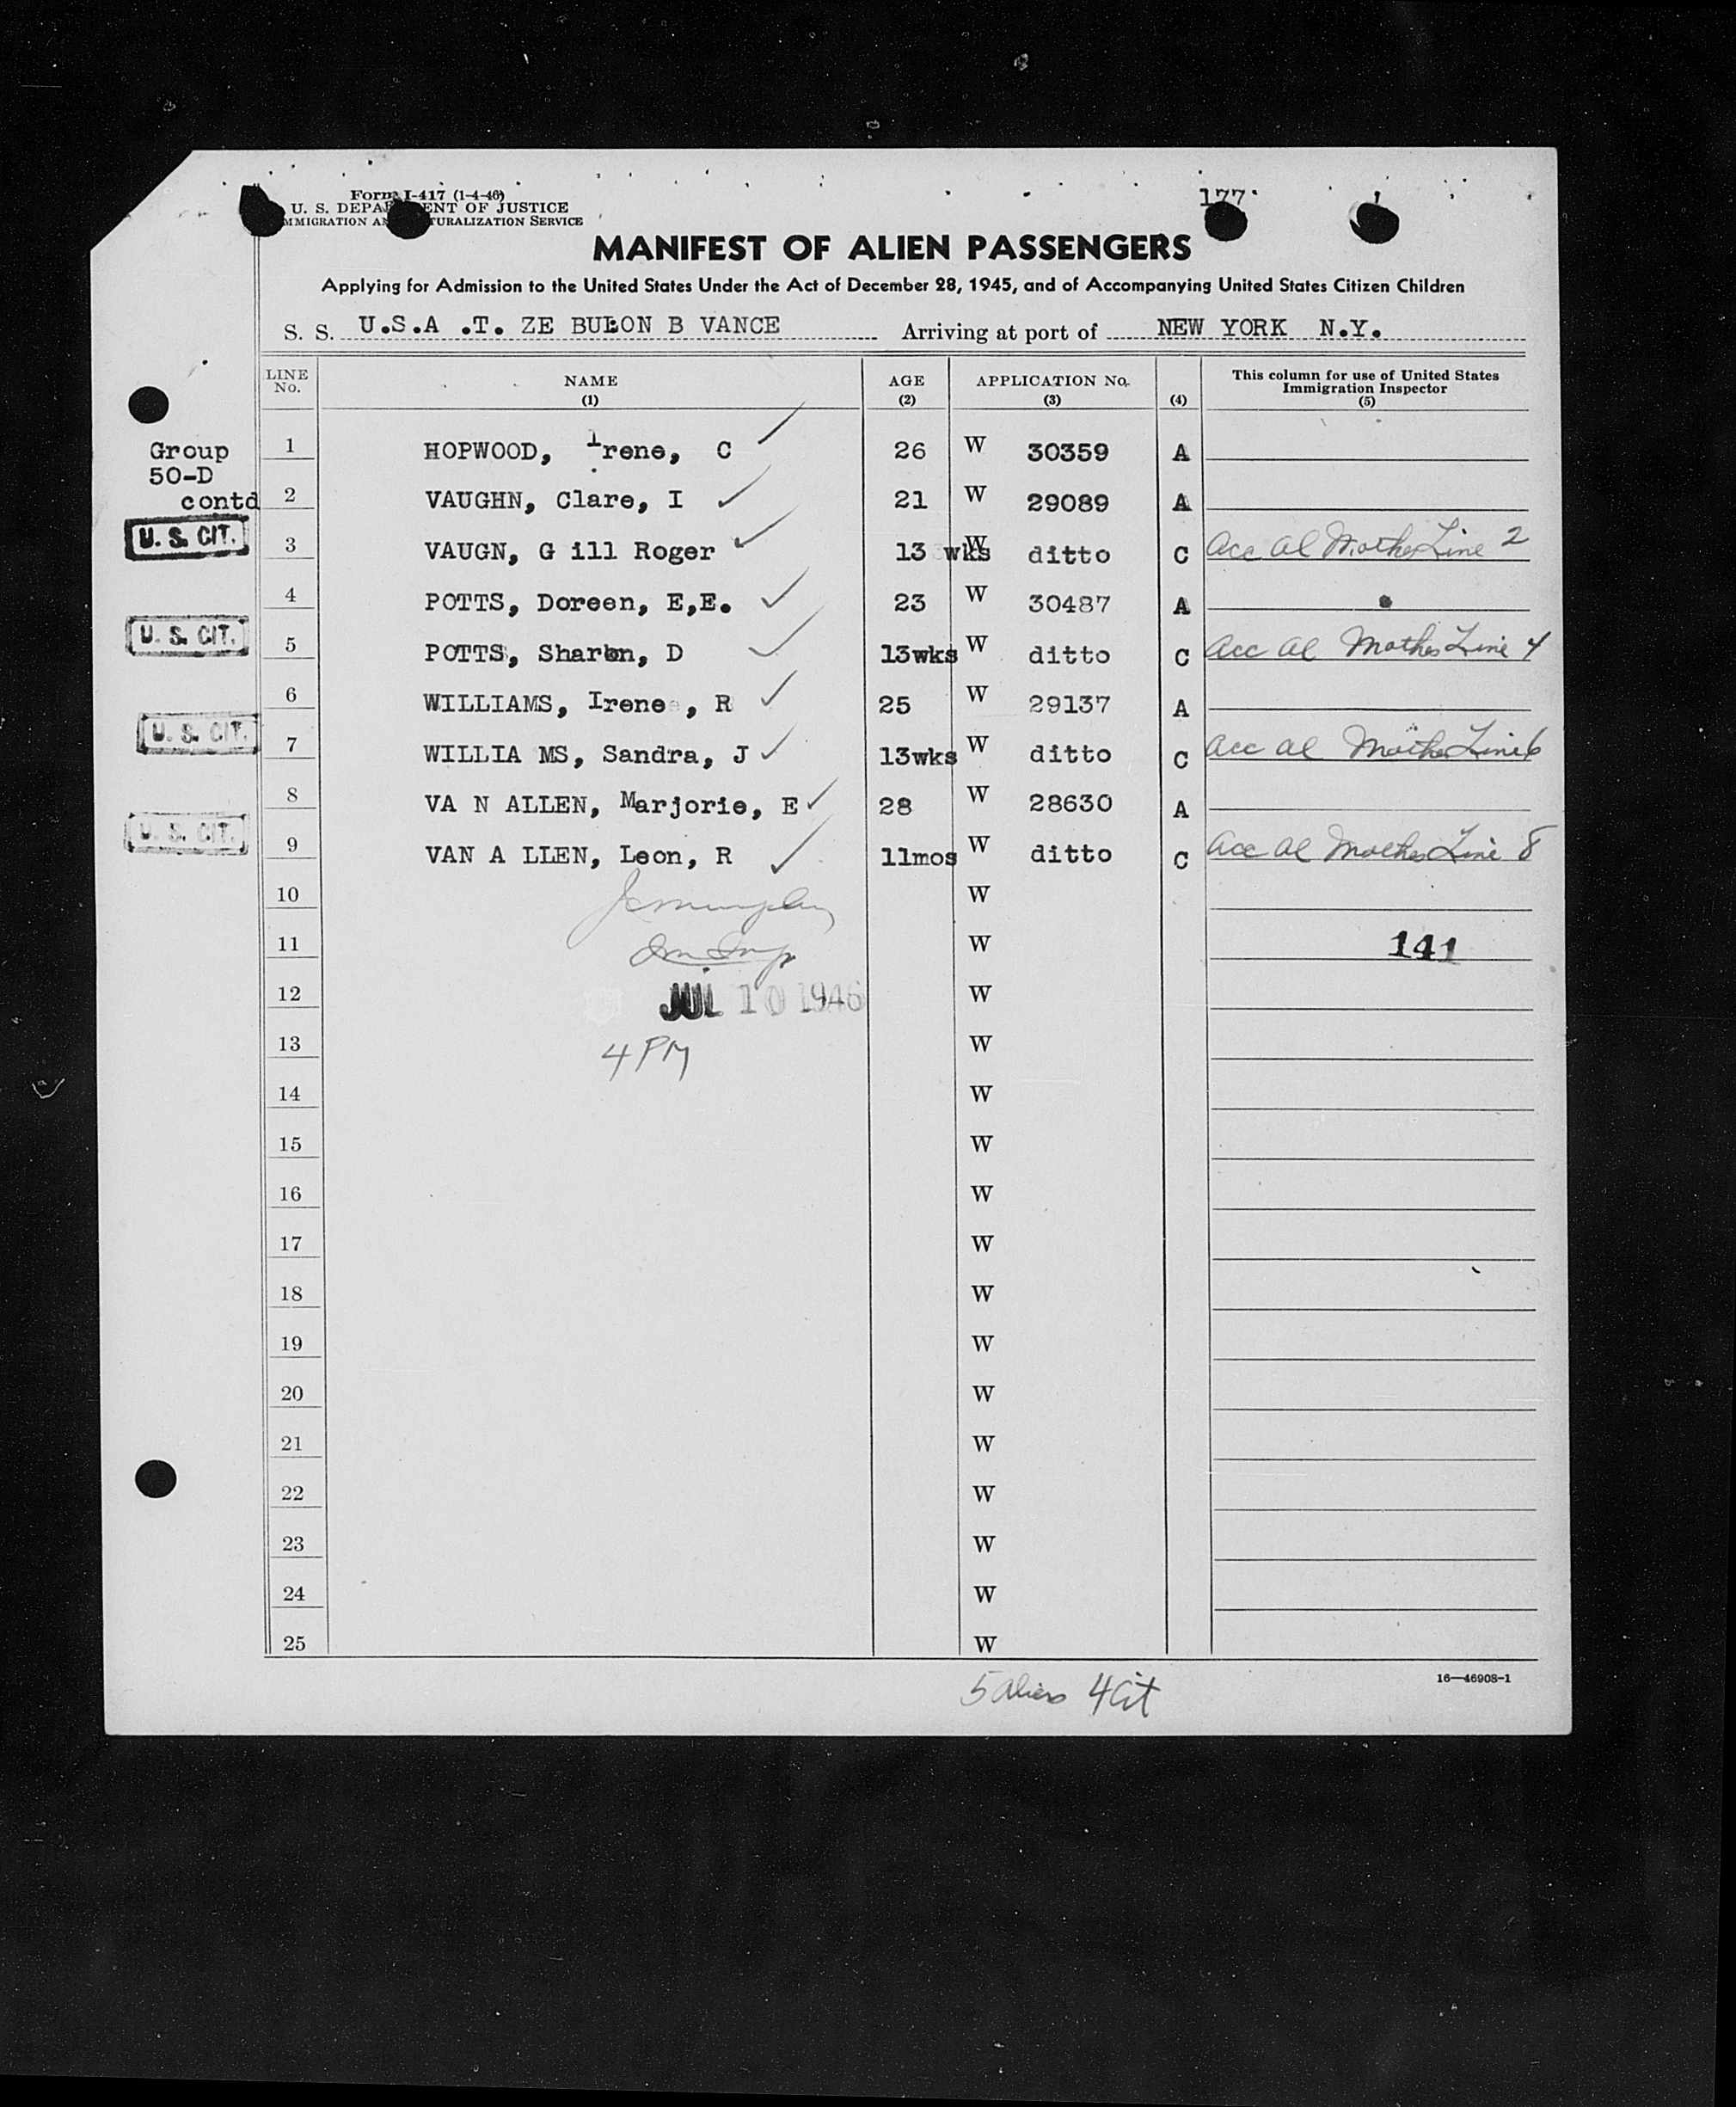 Form I-417 (1-4-46)
U. S. DEPA ENT OF JUSTICE
MMIGRATION A TURALIZATION SERVICE
177
MANIFEST OF ALIEN PASSENGERS
Applying for Admission to the United States Under the Act of December 28, 1945, and of Accompanying United States Citizen Children
S. S. U.S.A .T. ZE BULON B VANCE Arriving at port of NEW YORK N.Y.
LINE No. NAME (1) AGE (2) APPLICATION No. (3) (4) This column for use of United States Immigration Inspector (5)
Group
50-D
contd
1 HOPWOOD, Irene, C 26 W 30359 A
2 VAUGHN, Clare, I 21 W 29089 A
U. S. CIT. 3 VAUGN, G ill Roger 13 wks W ditto C Acc Al Mother Line 2
4 POTTS, Doreen, E,E. 23 W 30487 A
U. S. CIT. 5 POTTS, Sharon, D 13wks W ditto C Acc Al Mother Line 4
6 WILLIAMS, Irene , R 25 W 29137 A
U. S. CIT. 7 WILLIA MS, Sandra, J 13wks W ditto C Acc Al Mother Line 6
8 VA N ALLEN, Marjorie, E 28 W 28630 A
U. S. CIT. 9 VAN A LLEN, Leon, R 11mos W ditto C Acc Al Mother Line 8
10 W
11 W 141
12 JUL 10 1946 W
13 4 PM W
14 W
15 W
16 W
17 W
18 W
19 W
20 W
21 W
22 W
23 W
24 W
25 W
5 Aliens 4 Cit
16—46908-1